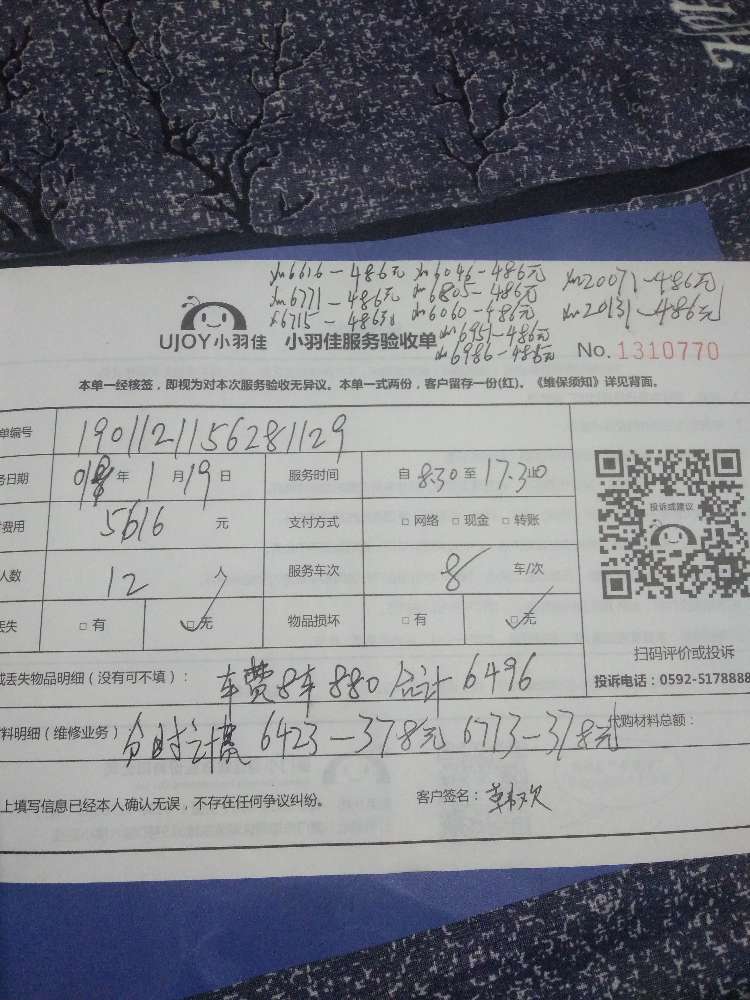 如6616-486元 如6046-486元 如20071-486元
如6771-486元 如6805-486元 如20131-486元
6715-486元 如6060-486元
如6951-486元
如6986-486元
UJOY小羽佳 小羽佳服务验收单 No. 1310770
本单一经核签，即视为对本次服务验收无异议。本单一式两份，客户留存一份(红)。《维保须知》详见背面。
单编号 190112115628 1129
务日期 019年1月19日 服务时间 自8:30至17:30止
费用 5616 元 支付方式 □ 网络 □ 现金 □ 转账
人数 12 人 服务车次 8 车/次
丢失 □ 有 □ 无 物品损坏 □ 有 □ 无
投诉或建议
扫码评价或投诉
投诉电话：0592-5178888
或丢失物品明细（没有可不填）： 车费8车880 合计6496
料明细（维修业务） 分时计费 6423-378元 6773-378元 代购材料总额：
上填写信息已经本人确认无误，不存在任何争议纠纷。 客户签名：韩欢